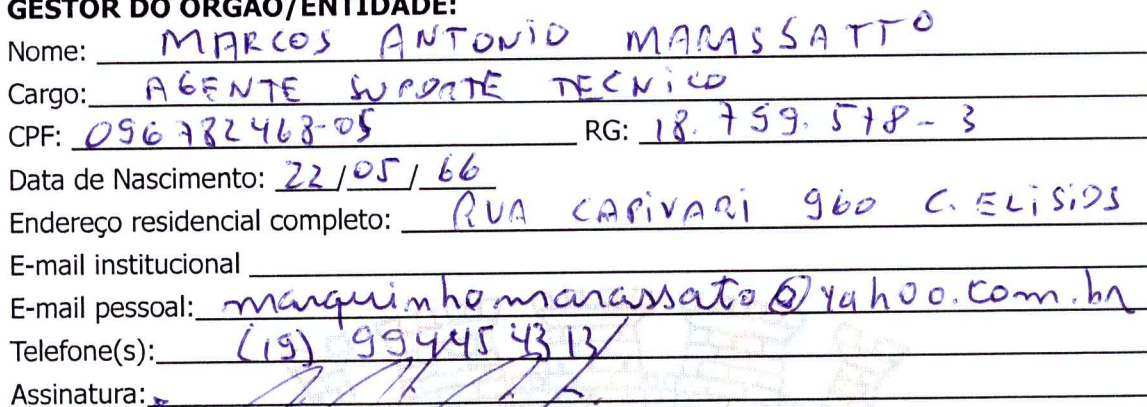 GESTOR DO ÓRGÃO/ENTIDADE:
Nome: MARCOS ANTONIO MARASSATTO
Cargo: AGENTE SUPORTE TECNICO
CPF: 096782468-05 RG: 18.799.578-3
Data de Nascimento: 22/05/66
Endereço residencial completo: RUA CAPIVARI 960 C. ELISIOS
E-mail institucional
E-mail pessoal: marquinhomarassato@yahoo.com.br
Telefone(s): (19) 994454313
Assinatura: